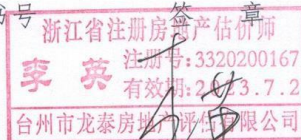 号 签 章
浙江省注册房地产估价师
李英 注册号:3320200167
有效期:2023.7.2
台州市龙泰房地产评估有限公司